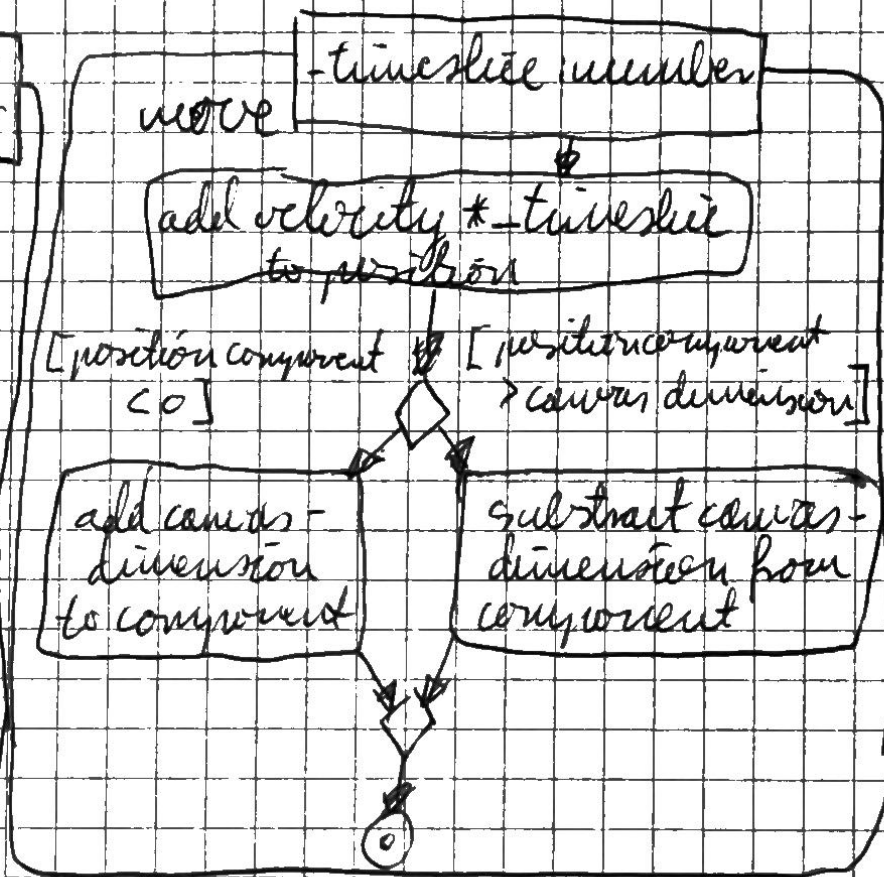 _timeslice: number
move
add velocity * _timeslice
to position
[position component
< 0]
[position component
> canvas dimension]
add canvas-
dimension
to component
substract canvas-
dimension from
component